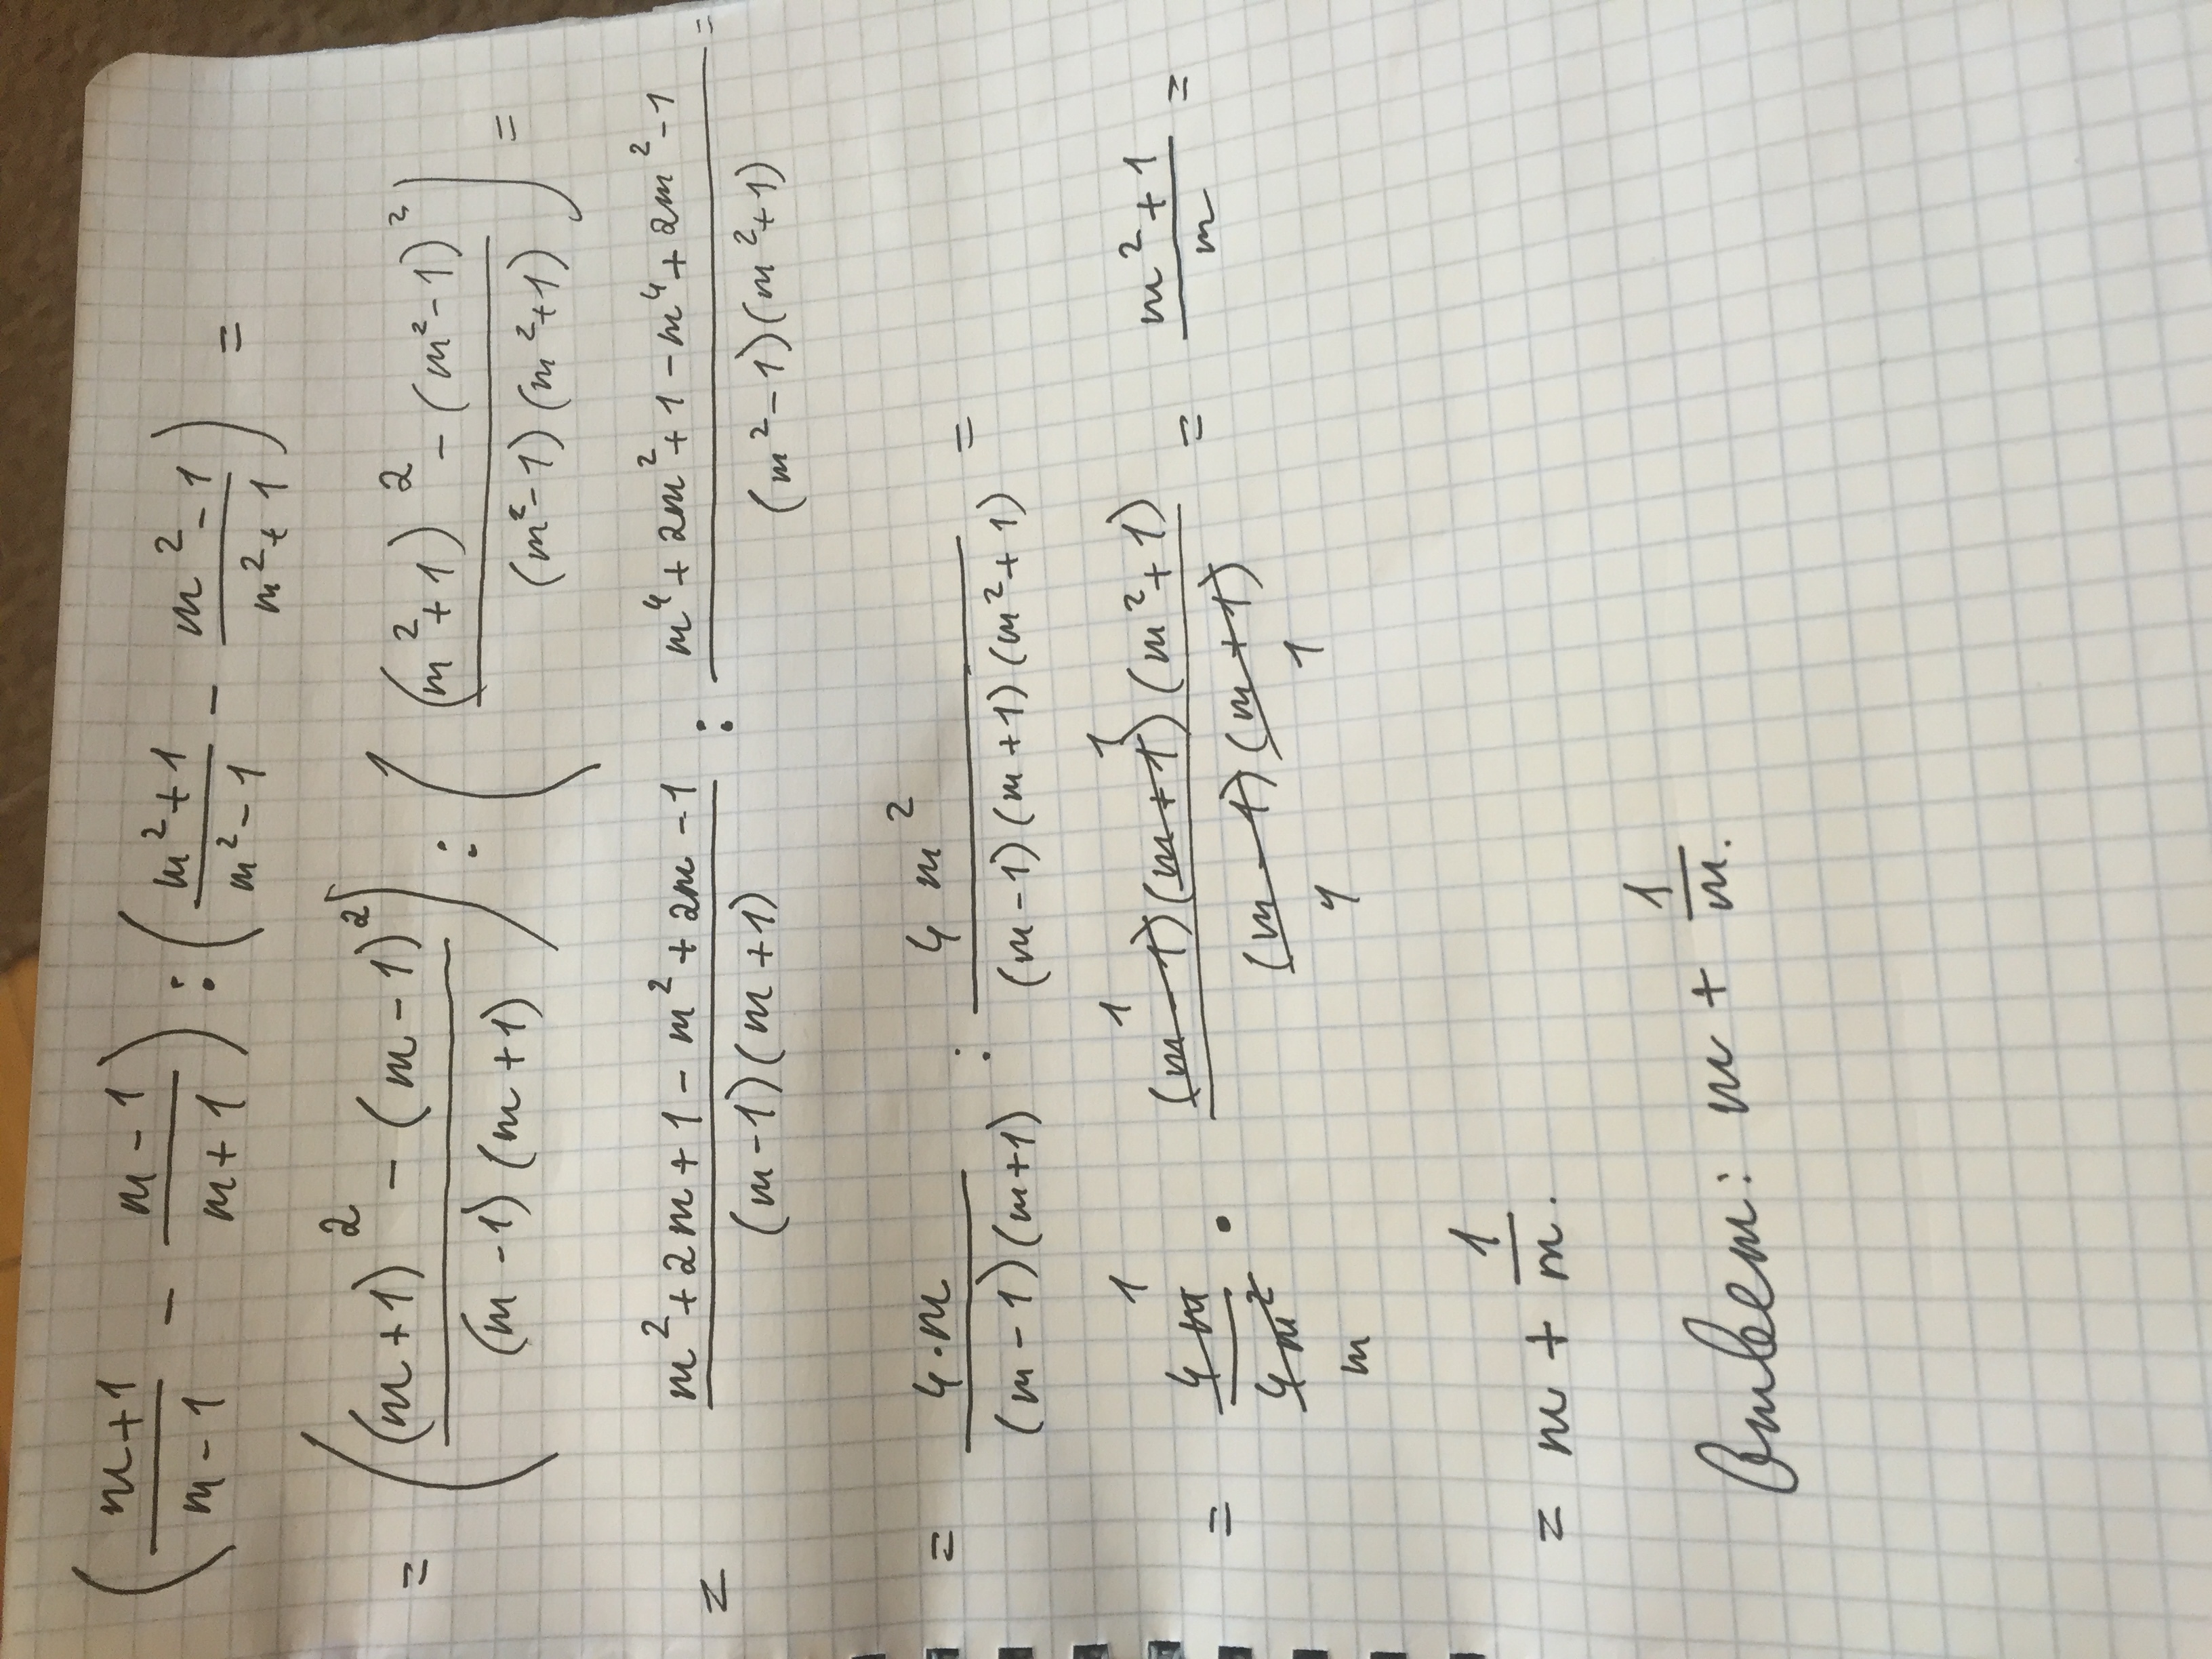 ( (m+1)/(m-1) - (m-1)/(m+1) ) : ( (m²+1)/(m²-1) - (m²-1)/(m²+1) ) =
= ( ((m+1)² - (m-1)²)/((m-1)(m+1)) ) : ( ((m²+1)² - (m²-1)²)/((m²-1)(m²+1)) ) =
= (m²+2m+1-m²+2m-1)/((m-1)(m+1)) : (m⁴+2m²+1-m⁴+2m²-1)/((m²-1)(m²+1)) =
= (4·m)/((m-1)(m+1)) : (4m²)/((m-1)(m+1)(m²+1)) =
= (4m)/(4m²) · ((m-1)(m+1)(m²+1))/((m-1)(m+1)) = (m²+1)/m =
= m + 1/m.
Ответ: m + 1/m.